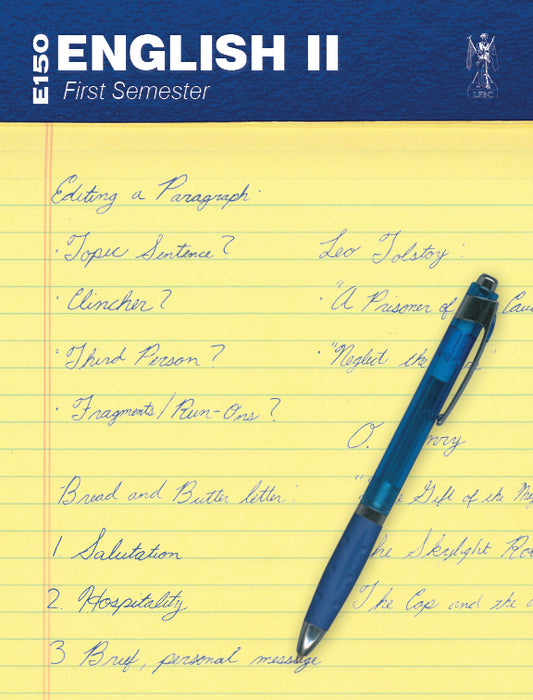 E150
ENGLISH II
First Semester
LFBC
Editing a Paragraph:
· Topic Sentence?
· Clincher?
· Third Person?
· Fragments/Run-Ons?
Bread and Butter letter:
1. Salutation
2. Hospitality
3 Brief, personal message
Leo Tolstoy:
· "A Prisoner of
· "Neglect the
O.
Gift of the
The Skylight
The Cop and the